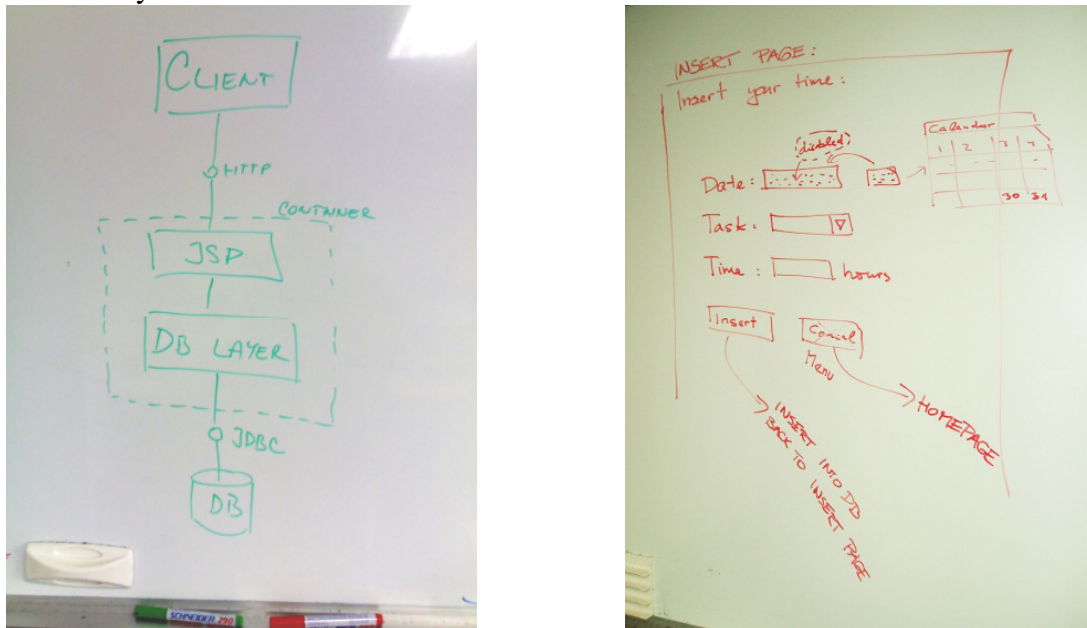 CLIENT
HTTP
CONTAINER
JSP
DB LAYER
JDBC
DB
SCHNEIDER 290
INSERT PAGE:
Insert your time:
Calendar
1 2 3 4
30 31
disabled
Date:
Task:
Time: hours
Insert
Cancel
Menu
HOMEPAGE
INSERT INTO DB
BACK TO INSERT PAGE